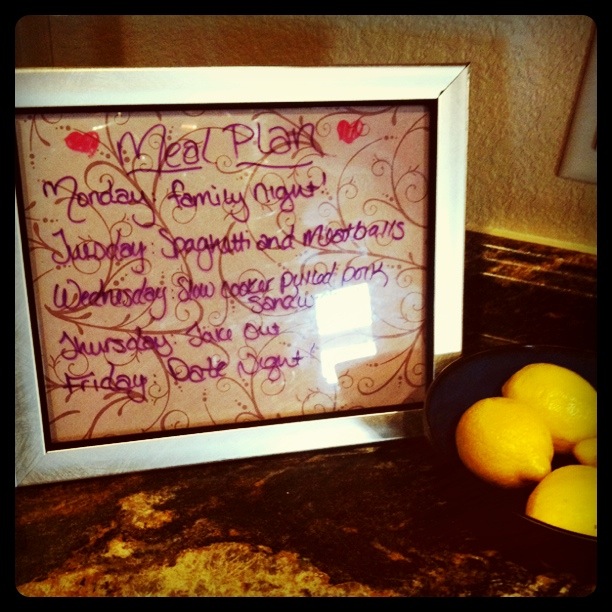 Meal Plan
Monday: family night!
Tuesday: Spaghetti and Meatballs
Wednesday: Slow cooker pulled pork
Thursday: Take Out
Friday: Date Night